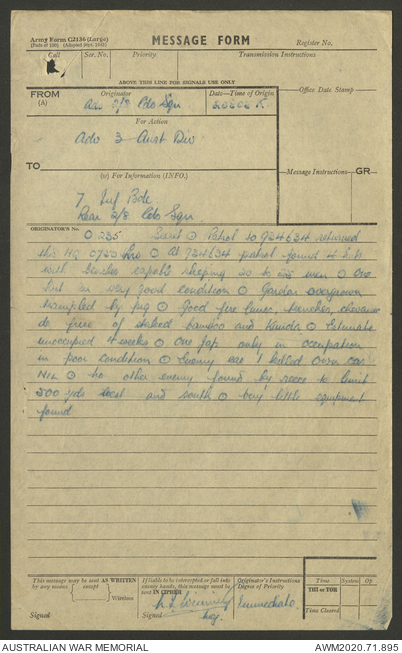 Army Form C2136 (Large)
(Pads of 100) (Adopted Sept. 1942)
MESSAGE FORM
Register No.
Call
Ser. No.
Priority
Transmission Instructions
ABOVE THIS LINE FOR SIGNALS USE ONLY
FROM
(A)
Originator
Adv 2/8 Cdo Sqn
Date—Time of Origin
Office Date Stamp
For Action
Adv 3 Aust Div
TO
(w) For Information (INFO.)
Message Instructions
GR
7 Inf Bde
Rear 2/8 Cdo Sqn
ORIGINATOR'S No.
O 235 Secret ⊙ Patrol to 924634 returned
this HQ 0730 hrs ⊙ At 924634 patrol found 4 huts
with bushes capable sleeping 20 to 25 men ⊙ One
hut in very good condition ⊙ Garden overgrown
trampled by pig ⊙ Good fire lanes, trenches, chevaux
de frise of staked bamboo and Kunda ⊙ Estimate
unoccupied 4 weeks ⊙ One Jap only in occupation
in poor condition ⊙ Enemy cas 1 killed own cas
NIL ⊙ No other enemy found by recce to limit
500 yds west and south ⊙ Very little equipment
found
This message may be sent AS WRITTEN
by any means (except) Wireless
Signed
If liable to be intercepted or fall into
enemy hands, this message must be
sent IN CIPHER
Signed
Maj.
Originator's Instructions
Degree of Priority
Immediate
Time
System
Op
THI or TOR
Time Cleared
AUSTRALIAN WAR MEMORIAL
AWM2020.71.895